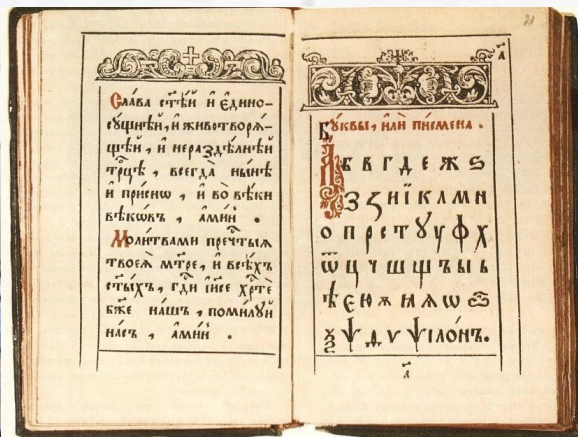 Сла́ва ст҃ѣ́й и҆ є҆дино-
су́щнѣй, и҆ животворѧ́-
щѣй, и҆ нераздѣ́лнѣй
трⷪ҇цѣ, всегда̀ ны́нѣ
и҆ при́снѡ, и҆ во̀ вѣ́ки
вѣкѡ́въ, а҆ми́нь.
Моли́твами преч҇тыѧ
твоеѧ̀ мт҃ре, и҆ всѣ́хъ
ст҃ы́хъ, гд҇и і҆и҃се хрⷭ҇те
бж҃е на́шъ, поми́луй
на́съ, а҆ми́нь.
21
а҃
Бу́квы, и҆лѝ пи́смена.
А Б В Г Д Е Ж Ѕ
З Ꙁ И Ї К Л М Н
О П Р С Т Ꙋ У Ф Х
Ѿ Ц Ч Ш Щ Ъ Ы Ь
Ѣ Є Ю Ѫ Ꙗ Ѧ Ѡ
Ѯ Ѱ Ѵ ѱїло́нъ.
а҃